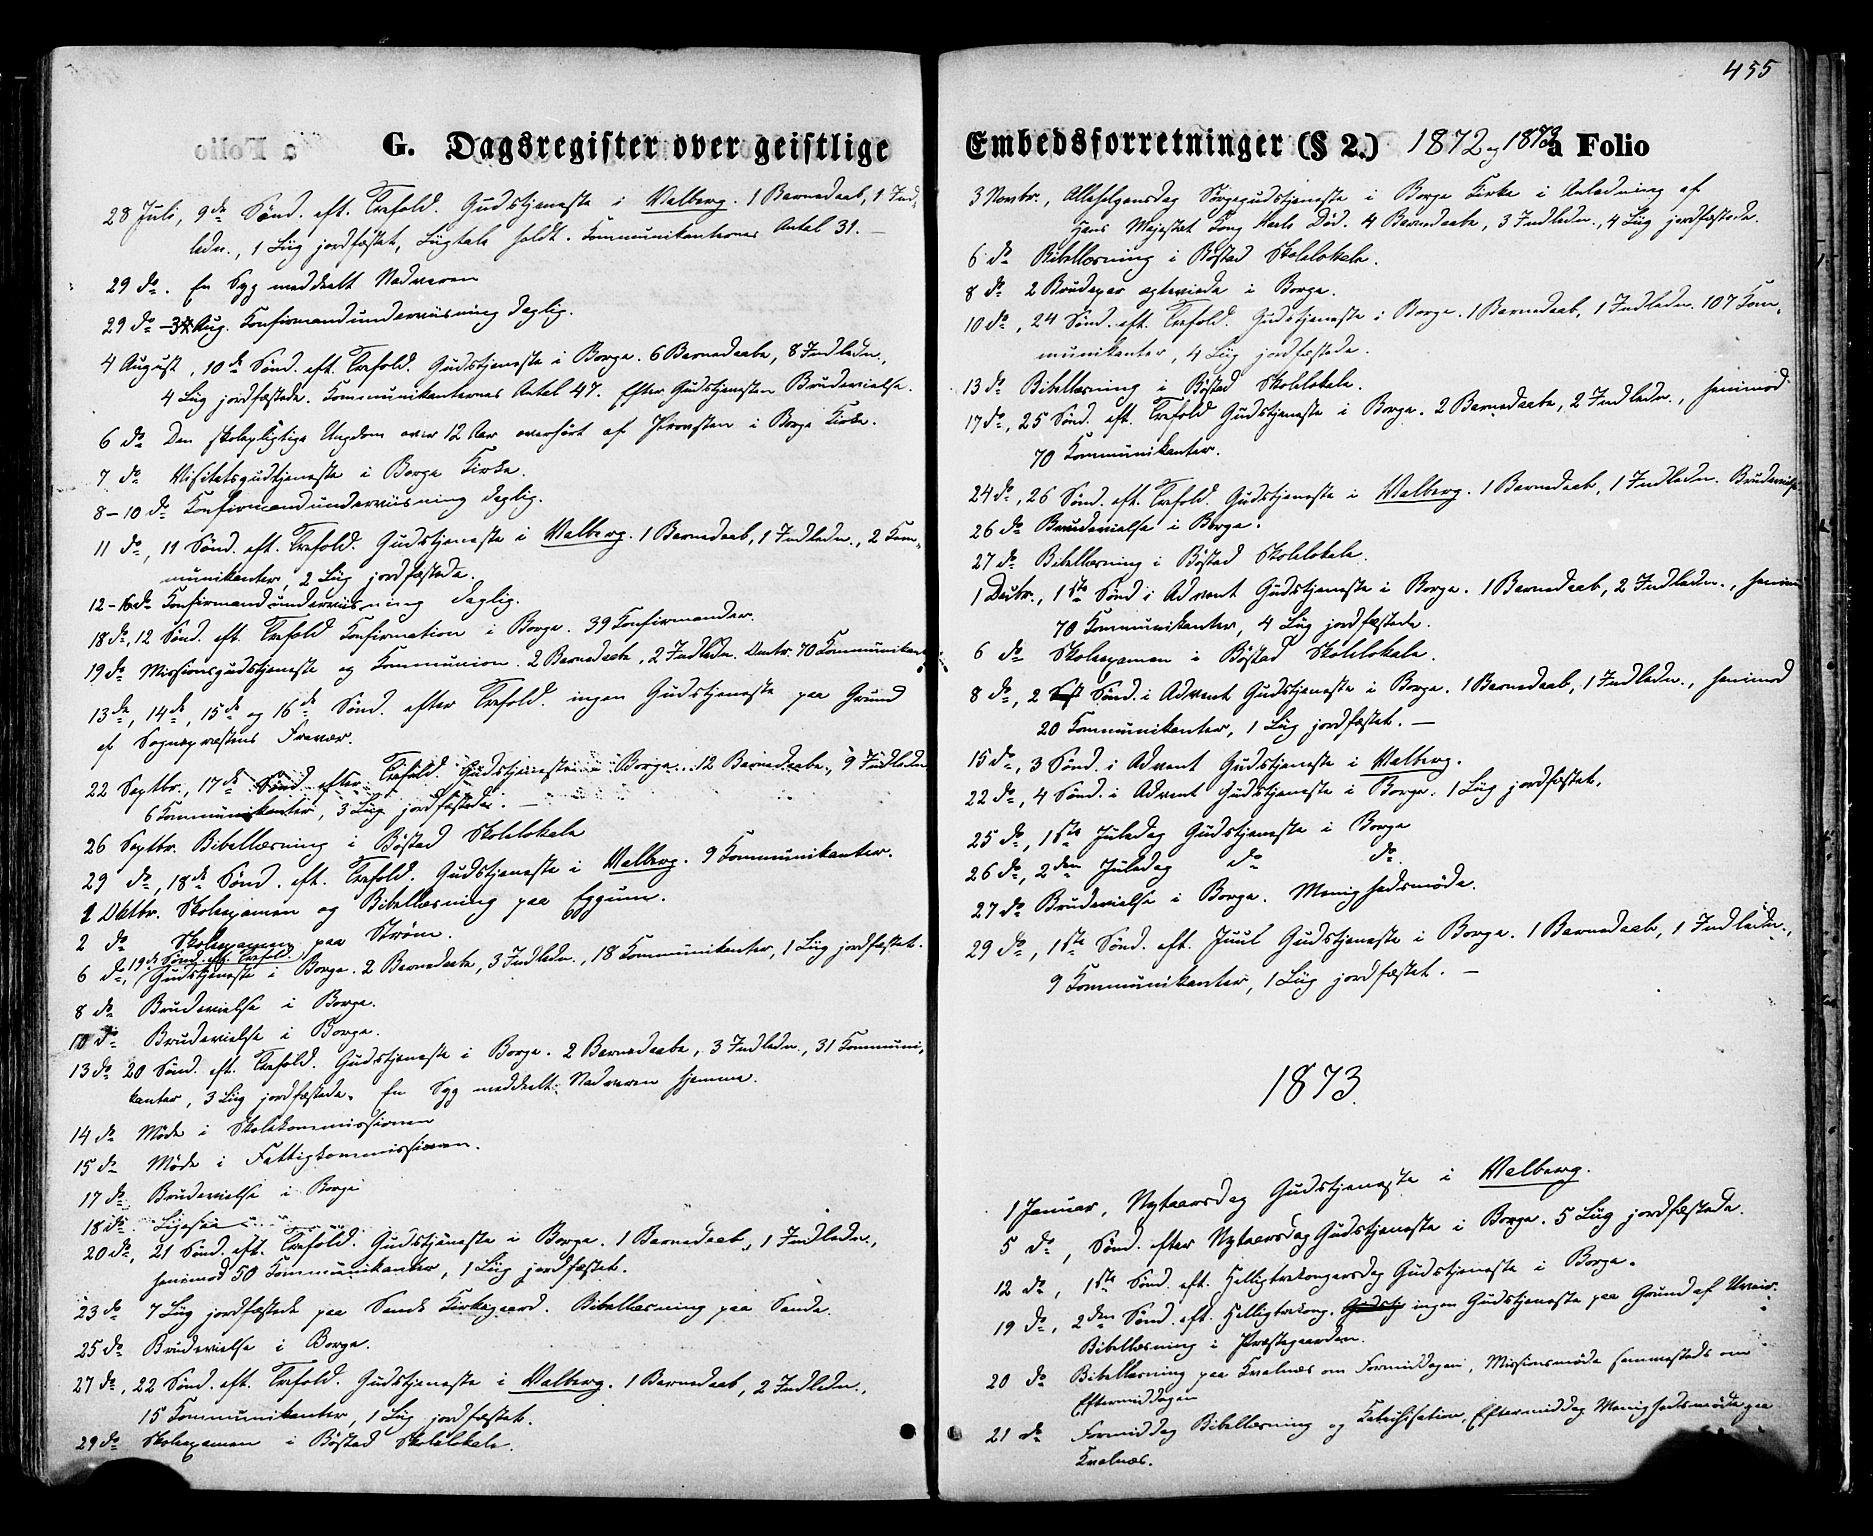 455
G. Dagsregister over geistlige
28 Juli, 9de Sønd. eft. Trefold. Gudstjeneste i Valberg. 1 Barnedaab, 1 Ind-
ledn., 1 Liig jordfæstet, Liigtale holdt. Kommunikanternes Antal 31. —
29 do. En Syg meddeelt Nadveren
29 do - 3 Aug. Konfirmandunderviisning daglig.
4 August, 10de Sønd. eft. Trefold. Gudstjeneste i Borge. 6 Barnedaabe, 8 Indledn.,
4 Liig jordfæstede. Kommunikanternes Antal 47. Efter Gudstjenesten Brudevielse.
6 do Den skolepligtige Ungdom over 12 Aar overhørt af Provsten i Borge Kirke.
7 do Visitatsgudstjeneste i Borge Kirke.
8-10 do Konfirmandunderviisning daglig.
11 do, 11 Sønd. eft. Trefold. Gudstjeneste i Valberg. 1 Barnedaab, 1 Indledn., 2 Kom-
munikanter, 2 Liig jordfæstede.
12-16 do Konfirmandunderviisning daglig.
18 do, 12 Sønd. eft. Trefold Konfirmation i Borge. 39 Konfirmander.
19 do Missionsgudstjeneste og Kommunion. 2 Barnedaabe, 2 Indledn. 70 Kommunikan
13de, 14de, 15de og 16de Sønd. efter Trefold. ingen Gudstjeneste paa Grund
af Sognepræstens Fravær.
22 Septbr., 17de Sønd. efter Trefold. Gudstjeneste i Borge. 12 Barnedaabe, 9 Indledn
6 Kommunikanter, 3 Liig jordfæstede. —
26 Septbr. Bibellæsning i Bøstad Skolelokale
29 do, 18de Sønd. eft. Trefold. Gudstjeneste i Valberg. 9 Kommunikanter.
1 Oktbr. Skoleexamen og Bibellæsning paa Eggum.
2 do Skoleexamen paa Strøm.
19de Sønd. eft. Trefold.
6 do, Gudstjeneste i Borge. 2 Barnedaabe, 3 Indledn., 18 Kommunikanter, 1 Liig jordfæstet.
8 do Brudevielse i Borge.
10 do Brudevielse i Borge.
13 do 20 Sønd. eft. Trefold. Gudstjeneste i Borge. 2 Barnedaabe, 3 Indledn., 31 Kommuni-
kanter, 3 Liig jordfæstede. En Syg meddeelt Nadveren hjemme.
14 do Møde i Skolekommissionen
15 do Møde i Fattigkommissionen.
17 do Brudevielse i Borge
18 do
20 do, 21 Sønd. eft. Trefold. Gudstjeneste i Borge. 1 Barnedaab, 1 Indledn.,
henimod 50 Kommunikanter, 1 Liig jordfæstet.
23 do 7 Liig jordfæstede paa Sande Kirkegaard. Bibellæsning paa Sande.
25 do Brudevielse i Borge.
27 do, 22 Sønd. eft. Trefold. Gudstjeneste i Valberg. 1 Barnedaab, 2 Indledn.,
15 Kommunikanter, 1 Liig jordfæstet.
29 do Skoleexamen i Bøstad Skolelokale.
Embedsforretninger (§ 2.) 1872 og 1873 a Folio
3 Novbr., Allehelgensdag Sørgegudstjeneste i Borge Kirke i Anledning af
Hans Majestæt Kong Karls Død. 4 Barnedaabe, 3 Indledn., 4 Liig jordfæstede.
6 do Bibellæsning i Bøstad Skolelokale.
8 do 2 Brudepar ægteviede i Borge.
10 do, 24 Sønd. eft. Trefold. Gudstjeneste i Borge. 1 Barnedaab, 1 Indledn. 107 Kom-
munikanter, 4 Liig jordfæstede.
13 do Bibellæsning i Bøstad Skolelokale.
17 do, 25 Sønd. eft. Trefold Gudstjeneste i Borge. 2 Barnedaabe, 2 Indledn., henimod
70 Kommunikanter.
24 do, 26 Sønd. eft. Trefold. Gudstjeneste i Valberg. 1 Barnedaab, 1 Indledn. Brudevielse
26 do Brudevielse i Borge.
27 do Bibellæsning i Bøstad Skolelokale.
1 Decbr., 1ste Sønd i Advent Gudstjeneste i Borge. 1 Barnedaab, 2 Indledn., henim
70 Kommunikanter, 4 Liig jordfæstede.
6 do Skoleexamen i Bøstad Skolelokale.
8 do, 2 Sønd. i Advent Gudstjeneste i Borge. 1 Barnedaab, 1 Indledn., henimod
20 Kommunikanter, 1 Liig jordfæstet. —
15 do, 3 Sønd. i Advent Gudstjeneste i Valberg.
22 do, 4 Sønd. i Advent Gudstjeneste i Borge. 1 Liig jordfæstet.
25 do, 1ste Juledag Gudstjeneste i Borge
26 do, 2den Juledag do do
27 do Brudevielse i Borge. Menighedsmøde.
29 do, 1ste Sønd. eft. Juul Gudstjeneste i Borge. 1 Barnedaab, 1 Indledn.,
9 Kommunikanter, 1 Liig jordfæstet. —
1873.
1 Januar, Nytaarsdag Gudstjeneste i Valberg.
5 do, Sønd. efter Nytaarsdag Gudstjeneste i Borge. 5 Liig jordfæstede.
12 do, 1ste Sønd. eft. Helligtrekongersdag Gudstjeneste i Borge.
19 do, 2den Sønd. eft. Helligtrekong. Gudstj ingen Gudstjeneste paa Grund af Uveir.
Bibellæsning i Præstegaarden.
20 do Bibellæsning paa Kvalnæs om Formiddagen, Missionsmøde sammesteds om
Eftermiddagen
21 do Formiddag Bibellæsning og Katechisation, Eftermiddag Menighedsmøde paa
Kvalnæs.